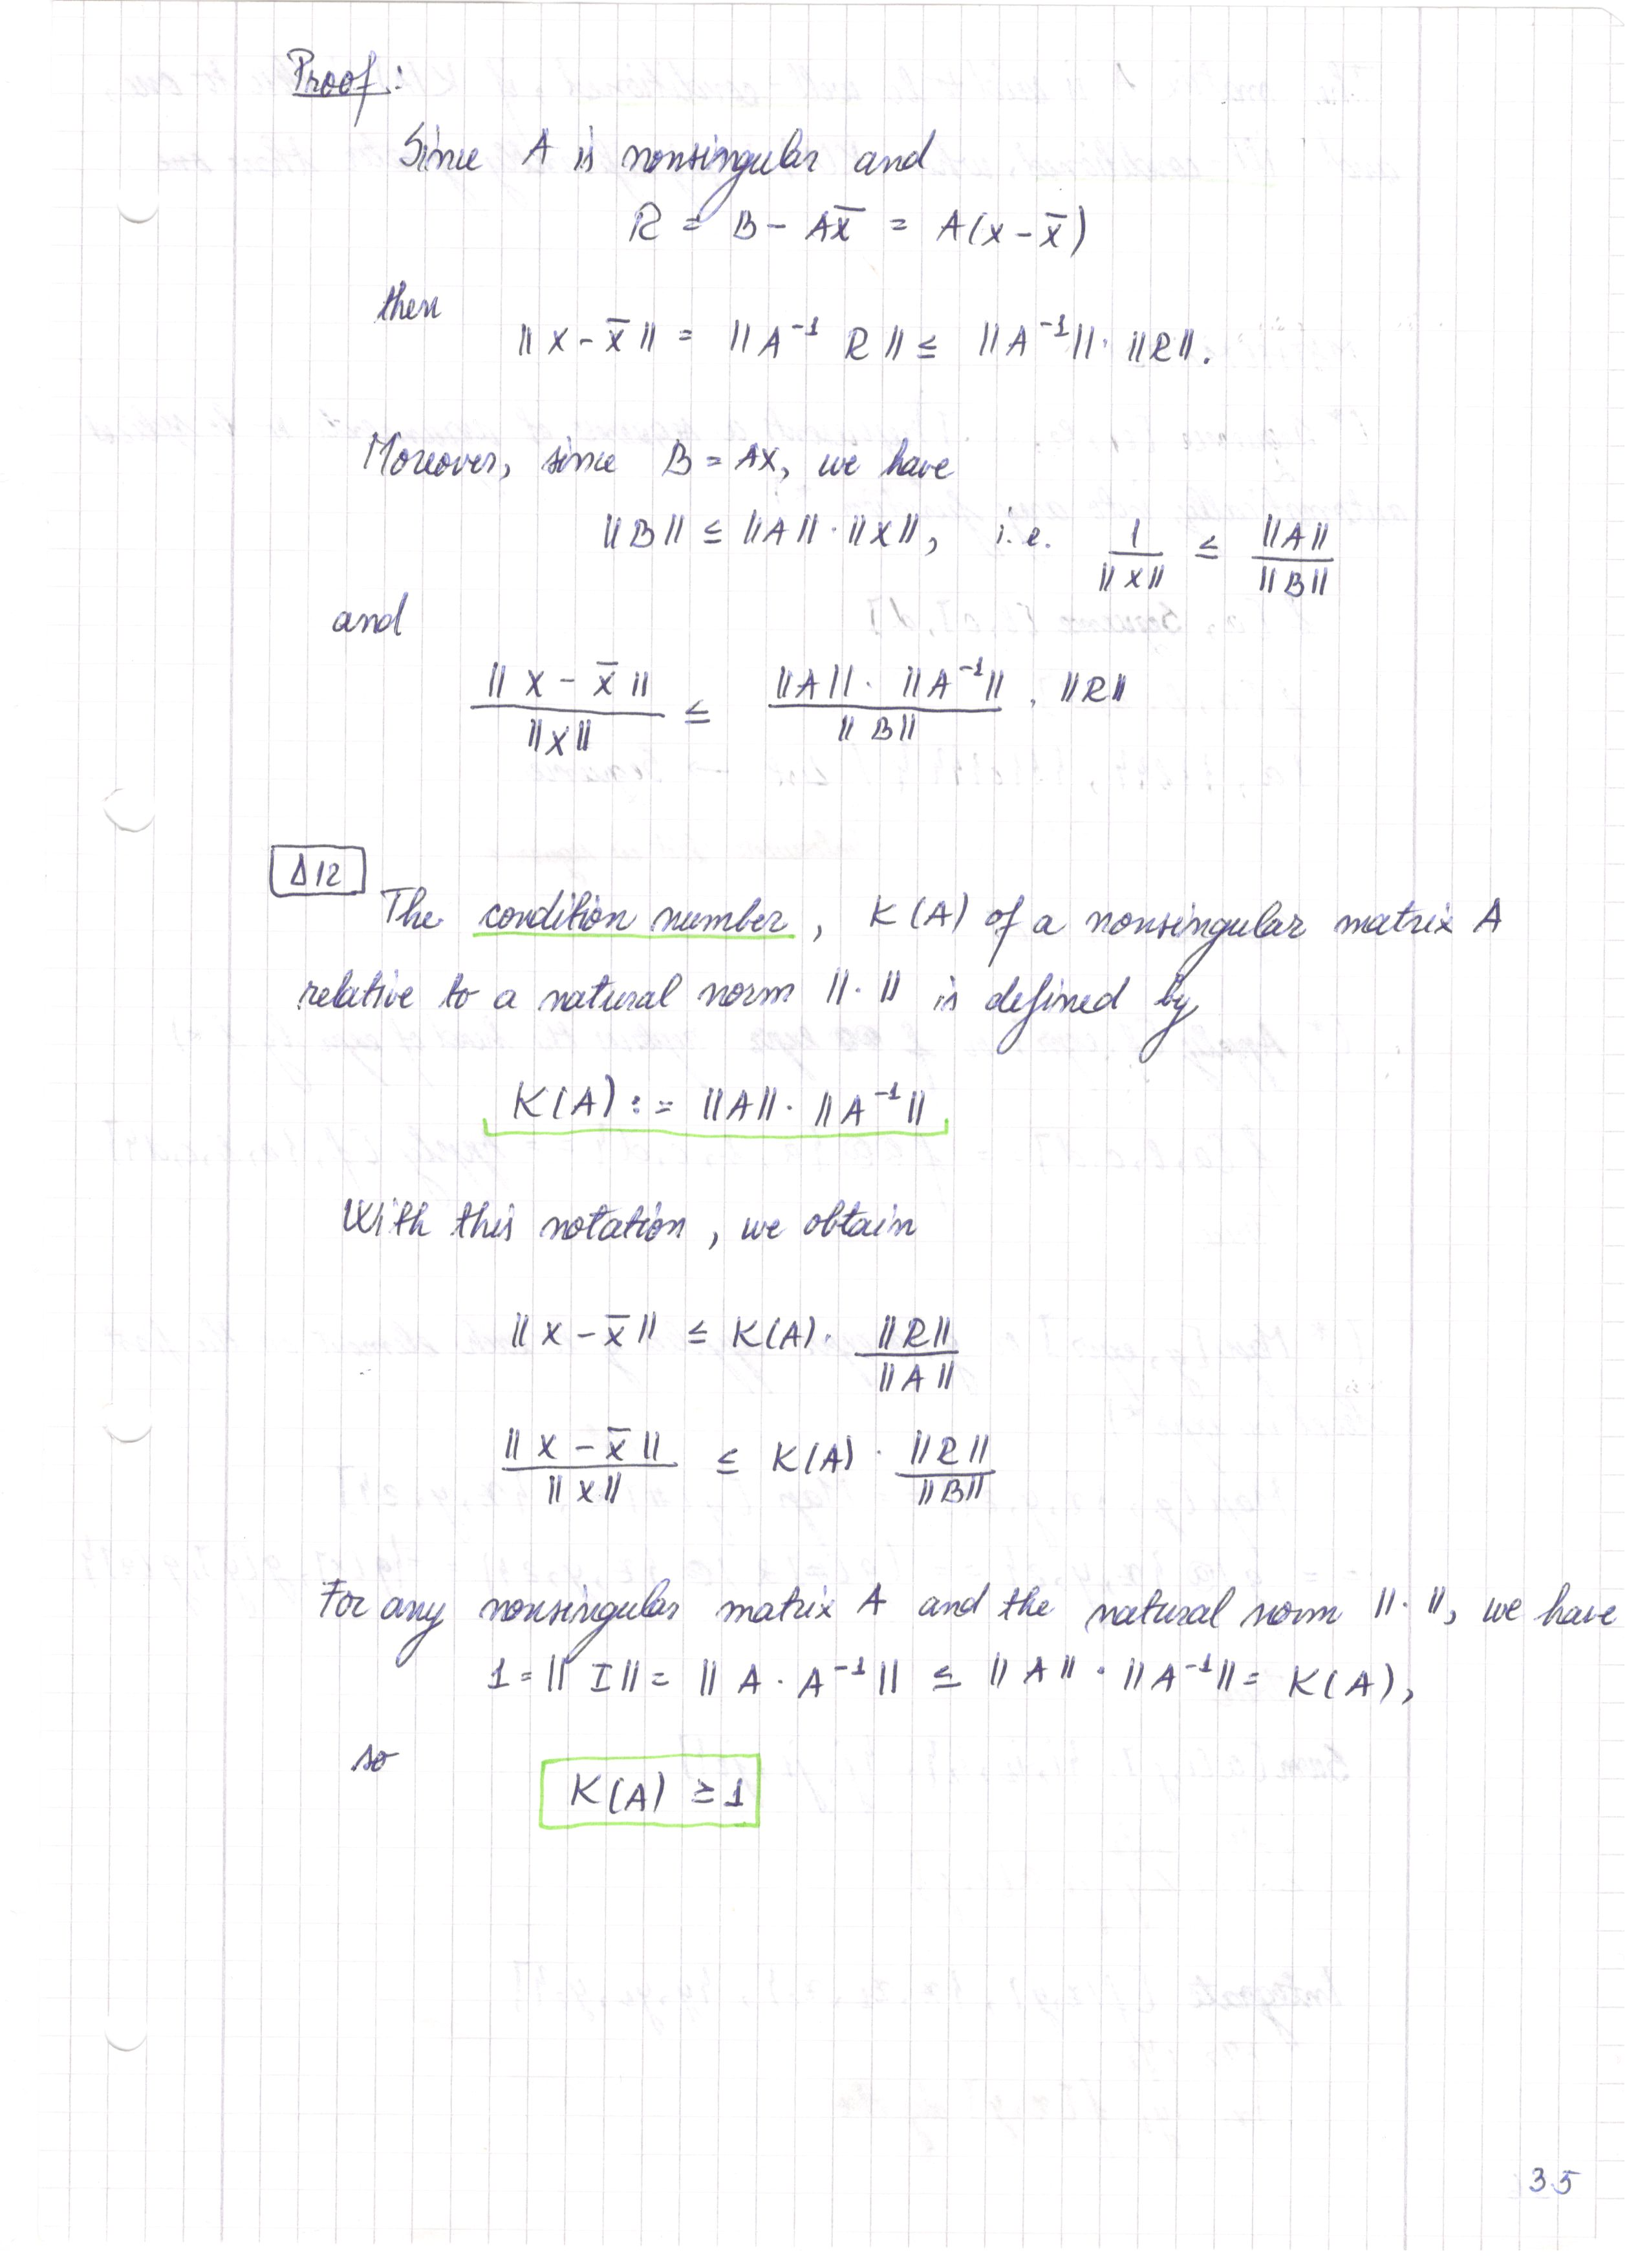 Proof:
Since A is nonsingular and
R = B - Ax̄ = A(x - x̄)
then
||x - x̄|| = ||A⁻¹ R|| ≤ ||A⁻¹|| · ||R||.
Moreover, since B = Ax, we have
||B|| ≤ ||A|| · ||x||, i.e. 1/||x|| ≤ ||A||/||B||
and
||x - x̄||/||x|| ≤ (||A|| · ||A⁻¹||)/||B|| · ||R||
Δ12
The condition number, K(A) of a nonsingular matrix A
relative to a natural norm ||·|| is defined by
K(A) := ||A|| · ||A⁻¹||
With this notation, we obtain
||x - x̄|| ≤ K(A) · ||R||/||A||
||x - x̄||/||x|| ≤ K(A) · ||R||/||B||
For any nonsingular matrix A and the natural norm ||·||, we have
1 = ||I|| = ||A · A⁻¹|| ≤ ||A|| · ||A⁻¹|| = K(A),
so
K(A) ≥ 1
35